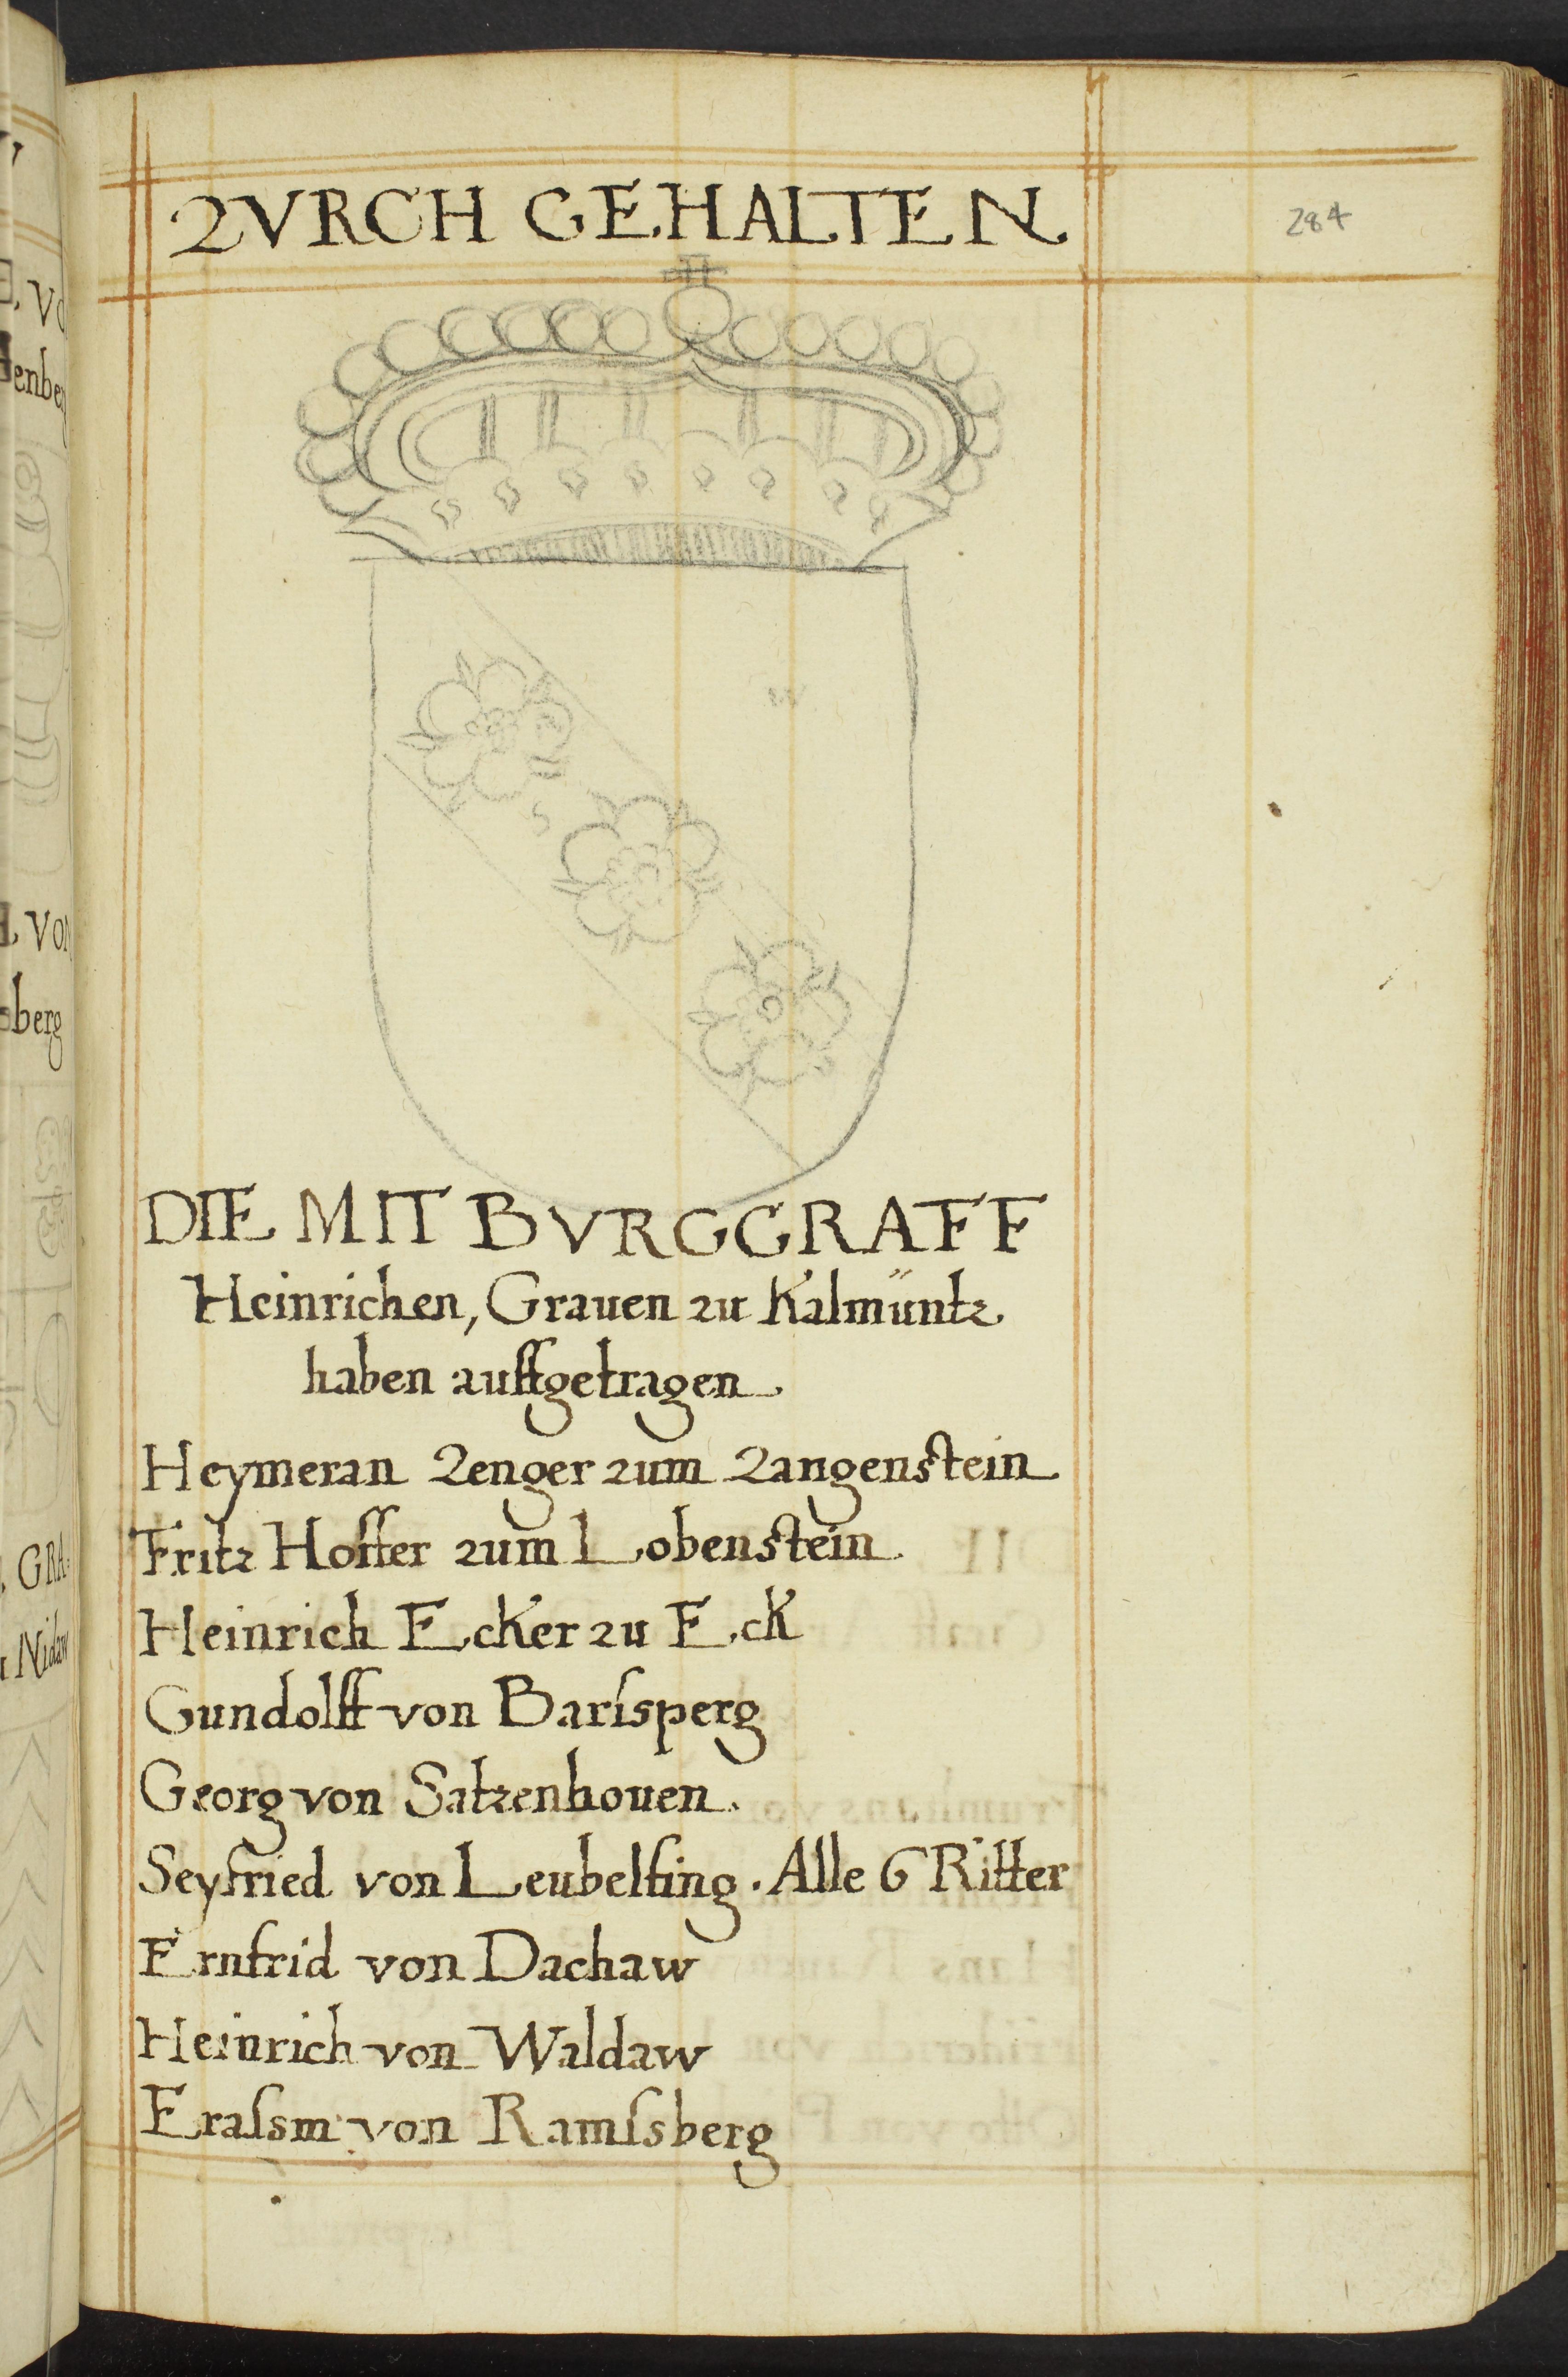 ZVRCH GEHALTEN
284
DIE MIT BVRGGRAFF
Heinrichen, Grauen zu Kalmüntz
haben auffgetragen
Heymeran Zenger zum Zangenstein
Fritz Hoffer zum Lobenstein
Heinrich Ecker zu Eck
Gundolff von Barſsperg
Georg von Satzenhouen
Seyfried von Leubelfing. Alle 6 Ritter
Ernfrid von Dachaw
Heinrich von Waldaw
Eraſsm von Ramſsberg